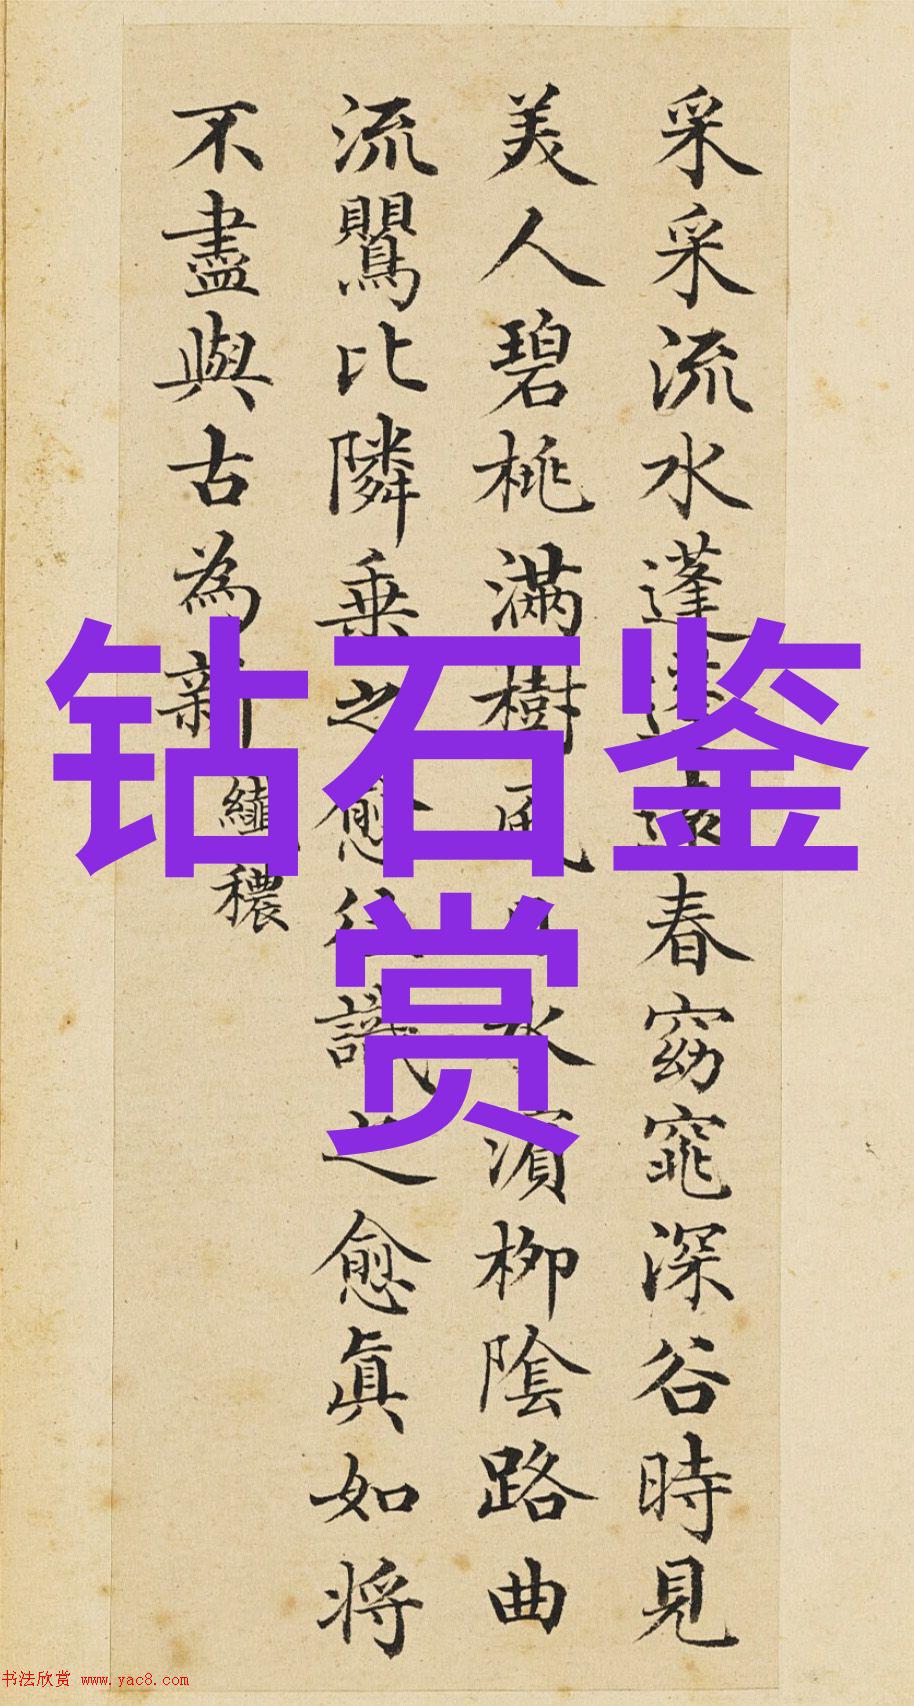 采采流水蓬蓬遠春窈窕深谷時見
美人碧桃滿樹風日水濱柳陰路曲
流鸎比隣乗之愈往識之愈眞如将
不盡與古為新
纖穠
钻石鉴
赏
书法欣赏 www.yac8.com